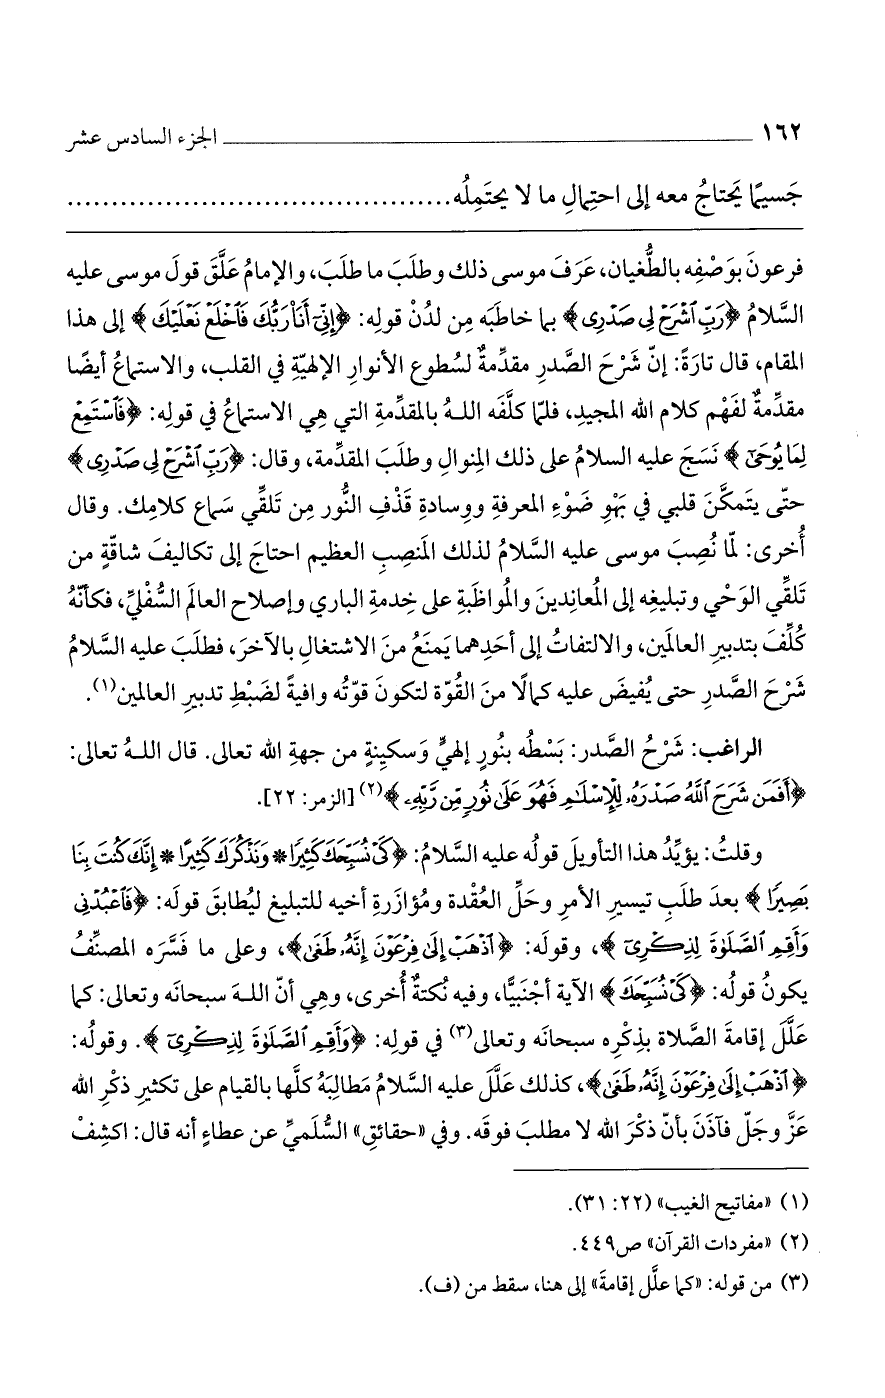 ١٦٢ ــــــــــــــــــــــــــــــــ الجزء السادس عشر
جَسيمًا يَحتاجُ معه إلى احتِمالِ ما لا يحتَمِلُه...........................................
فرعونَ بوَصْفِه بالطُّغيان، عَرَفَ موسى ذلك وطلَبَ ما طلَبَ، والإمامُ عَلَّقَ قولَ موسى عليه
السَّلامُ ﴿رَبِّ ٱشْرَحْ لِى صَدْرِى﴾ بما خاطَبَه مِن لدُنْ قولِه: ﴿إِنِّىٓ أَنَا۠ رَبُّكَ فَٱخْلَعْ نَعْلَيْكَ﴾ إلى هذا
المقام، قال تارَةً: إنّ شَرْحَ الصَّدرِ مقدِّمةٌ لسُطوعِ الأنوارِ الإلهيّةِ في القلب، والاستماعُ أيضًا
مقدِّمةٌ لفَهْم كلام الله المجيدِ، فلمّا كلَّفَه اللـهُ بالمقدِّمةِ التي هِي الاستماعُ في قولِه: ﴿فَٱسْتَمِعْ
لِمَا يُوحَىٰٓ﴾ نَسَجَ عليه السلامُ على ذلك المِنوالِ وطلَبَ المقدِّمة، وقال: ﴿رَبِّ ٱشْرَحْ لِى صَدْرِى﴾
حتّى يتَمكَّنَ قلبي في بَهْوِ ضَوْءِ المعرفةِ ووِسادةِ قَذْفِ النُّور مِن تَلقِّي سَماعِ كلامِك. وقال
أُخرى: لمّا نُصِبَ موسى عليه السَّلامُ لذلك المَنصِبِ العظيم احتاجَ إلى تكاليفَ شاقّةٍ من
تَلقِّي الوَحْي وتبليغِه إلى المُعاندِينَ والمُواظَبةِ على خِدمةِ الباري وإصلاح العالمَ السُّفْليِّ، فكأنّهُ
كُلِّفَ بتدبيرِ العالمَين، والالتفاتُ إلى أحَدِهما يَمنَعُ منَ الاشتغالِ بالآخرَ، فطلَبَ عليه السَّلامُ
شَرْحَ الصَّدرِ حتى يُفيضَ عليه كمالًا منَ القُوّة لتكونَ قوّتُه وافيةً لضَبْطِ تدبيرِ العالمين(١).
الراغب: شَرْحُ الصَّدر: بَسْطُه بنُورٍ إلهيٍّ وَسكينِةٍ من جهةِ الله تعالى. قال اللـهُ تعالى:
﴿أَفَمَن شَرَحَ ٱللَّهُ صَدْرَهُۥ لِلْإِسْلَـٰمِ فَهُوَ عَلَىٰ نُورٍ مِّن رَّبِّهِۦ﴾(٢) [الزمر: ٢٢].
وقلتُ: يؤيِّدُ هذا التأويلَ قولُه عليه السَّلامُ: ﴿كَىْ نُسَبِّحَكَ كَثِيرًا * وَنَذْكُرَكَ كَثِيرًا * إِنَّكَ كُنتَ بِنَا
بَصِيرًا﴾ بعدَ طلَبِ تيسيرِ الأمرِ وحَلِّ العُقْدة ومُؤازَرةِ أخيه للتبليغِ ليُطابقَ قولَه: ﴿فَٱعْبُدْنِى
وَأَقِمِ ٱلصَّلَوٰةَ لِذِكْرِىٓ﴾، وقولَه: ﴿ٱذْهَبْ إِلَىٰ فِرْعَوْنَ إِنَّهُۥ طَغَىٰ﴾، وعلى ما فسَّرَه المصنِّفُ
يكونُ قولُه: ﴿كَىْ نُسَبِّحَكَ﴾ الآية أجْنَبيًّا، وفيه نُكتةٌ أُخرى، وهِي أنّ اللـهَ سبحانَه وتعالى: كما
علَّلَ إقامةَ الصَّلاة بذِكْرِه سبحانَه وتعالى(٣) في قولِه: ﴿وَأَقِمِ ٱلصَّلَوٰةَ لِذِكْرِىٓ﴾. وقولُه:
﴿ٱذْهَبْ إِلَىٰ فِرْعَوْنَ إِنَّهُۥ طَغَىٰ﴾، كذلك علَّلَ عليه السَّلامُ مَطالِبَهُ كلَّها بالقيام على تكثيرِ ذكْرِ الله
عَزَّ وجَلّ فآذَنَ بأنّ ذكْرَ الله لا مطلبَ فوقَه. وفي «حقائقِ» السُّلَميِّ عن عطاءٍ أنه قال: اكشِفْ
(١) «مفاتيح الغيب» (٢٢: ٣١).
(٢) «مفردات القرآن» ص٤٤٩.
(٣) من قوله: «كما علَّل إقامةَ» إلى هنا، سقط من (ف).